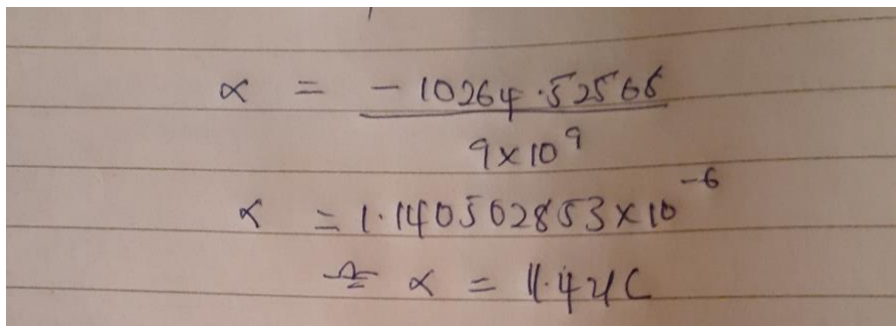 α = -10264.52568
9×10⁹
α = 1.140502853×10⁻⁶
≏ α = 11.4μC